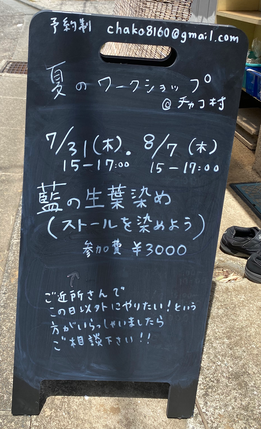 予約制 chako8160@gmail.com
夏のワークショップ
@チャコ村
7/31(木). 8/7(木)
15-17:00 15-17:00
藍の生葉染め
(ストールを染めよう)
参加費 ¥3000
↑
ご近所さんで
この日以外にやりたい!という
方がいらっしゃいましたら
ご相談下さい!!